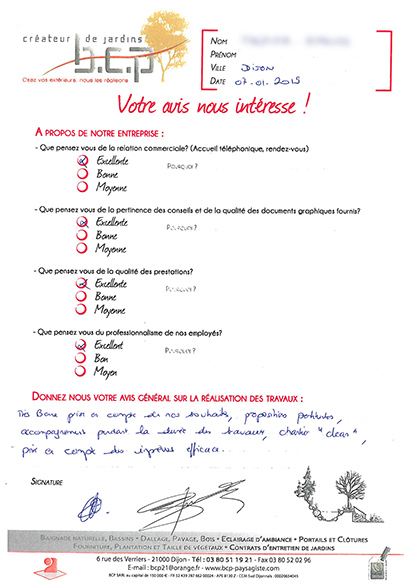 créateur de jardins
b.c.p
Osez vos extérieurs, nous les réalisons
NOM
PRÉNOM
VILLE DIJON
DATE 07.01.2015
Votre avis nous intéresse !
A PROPOS DE NOTRE ENTREPRISE :
- Que pensez vous de la relation commerciale? (Accueil téléphonique, rendez-vous)
Excellente POURQUOI ?
Bonne
Moyenne
- Que pensez vous de la pertinence des conseils et de la qualité des documents graphiques fournis?
Excellente POURQUOI ?
Bonne
Moyenne
- Que pensez vous de la qualité des prestations?
Excellente POURQUOI ?
Bonne
Moyenne
- Que pensez vous du professionnalisme de nos employés?
Excellent POURQUOI ?
Bon
Moyen
DONNEZ NOUS VOTRE AVIS GÉNÉRAL SUR LA RÉALISATION DES TRAVAUX :
Très bonne prise en compte de nos souhaits, propositions pertinentes,
accompagnement pendant la durée des travaux, chantier "clean",
prise en compte des imprévus efficace.
SIGNATURE
BAIGNADE NATURELLE, BASSINS • DALLAGE, PAVAGE, BOIS • ECLAIRAGE D'AMBIANCE • PORTAILS ET CLÔTURES
FOURNITURE, PLANTATION ET TAILLE DE VÉGÉTAUX • CONTRATS D'ENTRETIEN DE JARDINS
6 rue des Verriers - 21000 Dijon - Tél : 03 80 51 19 21 - Fax 03 80 52 02 96
E-mail : bcp21@orange.fr - www.bcp-paysagiste.com